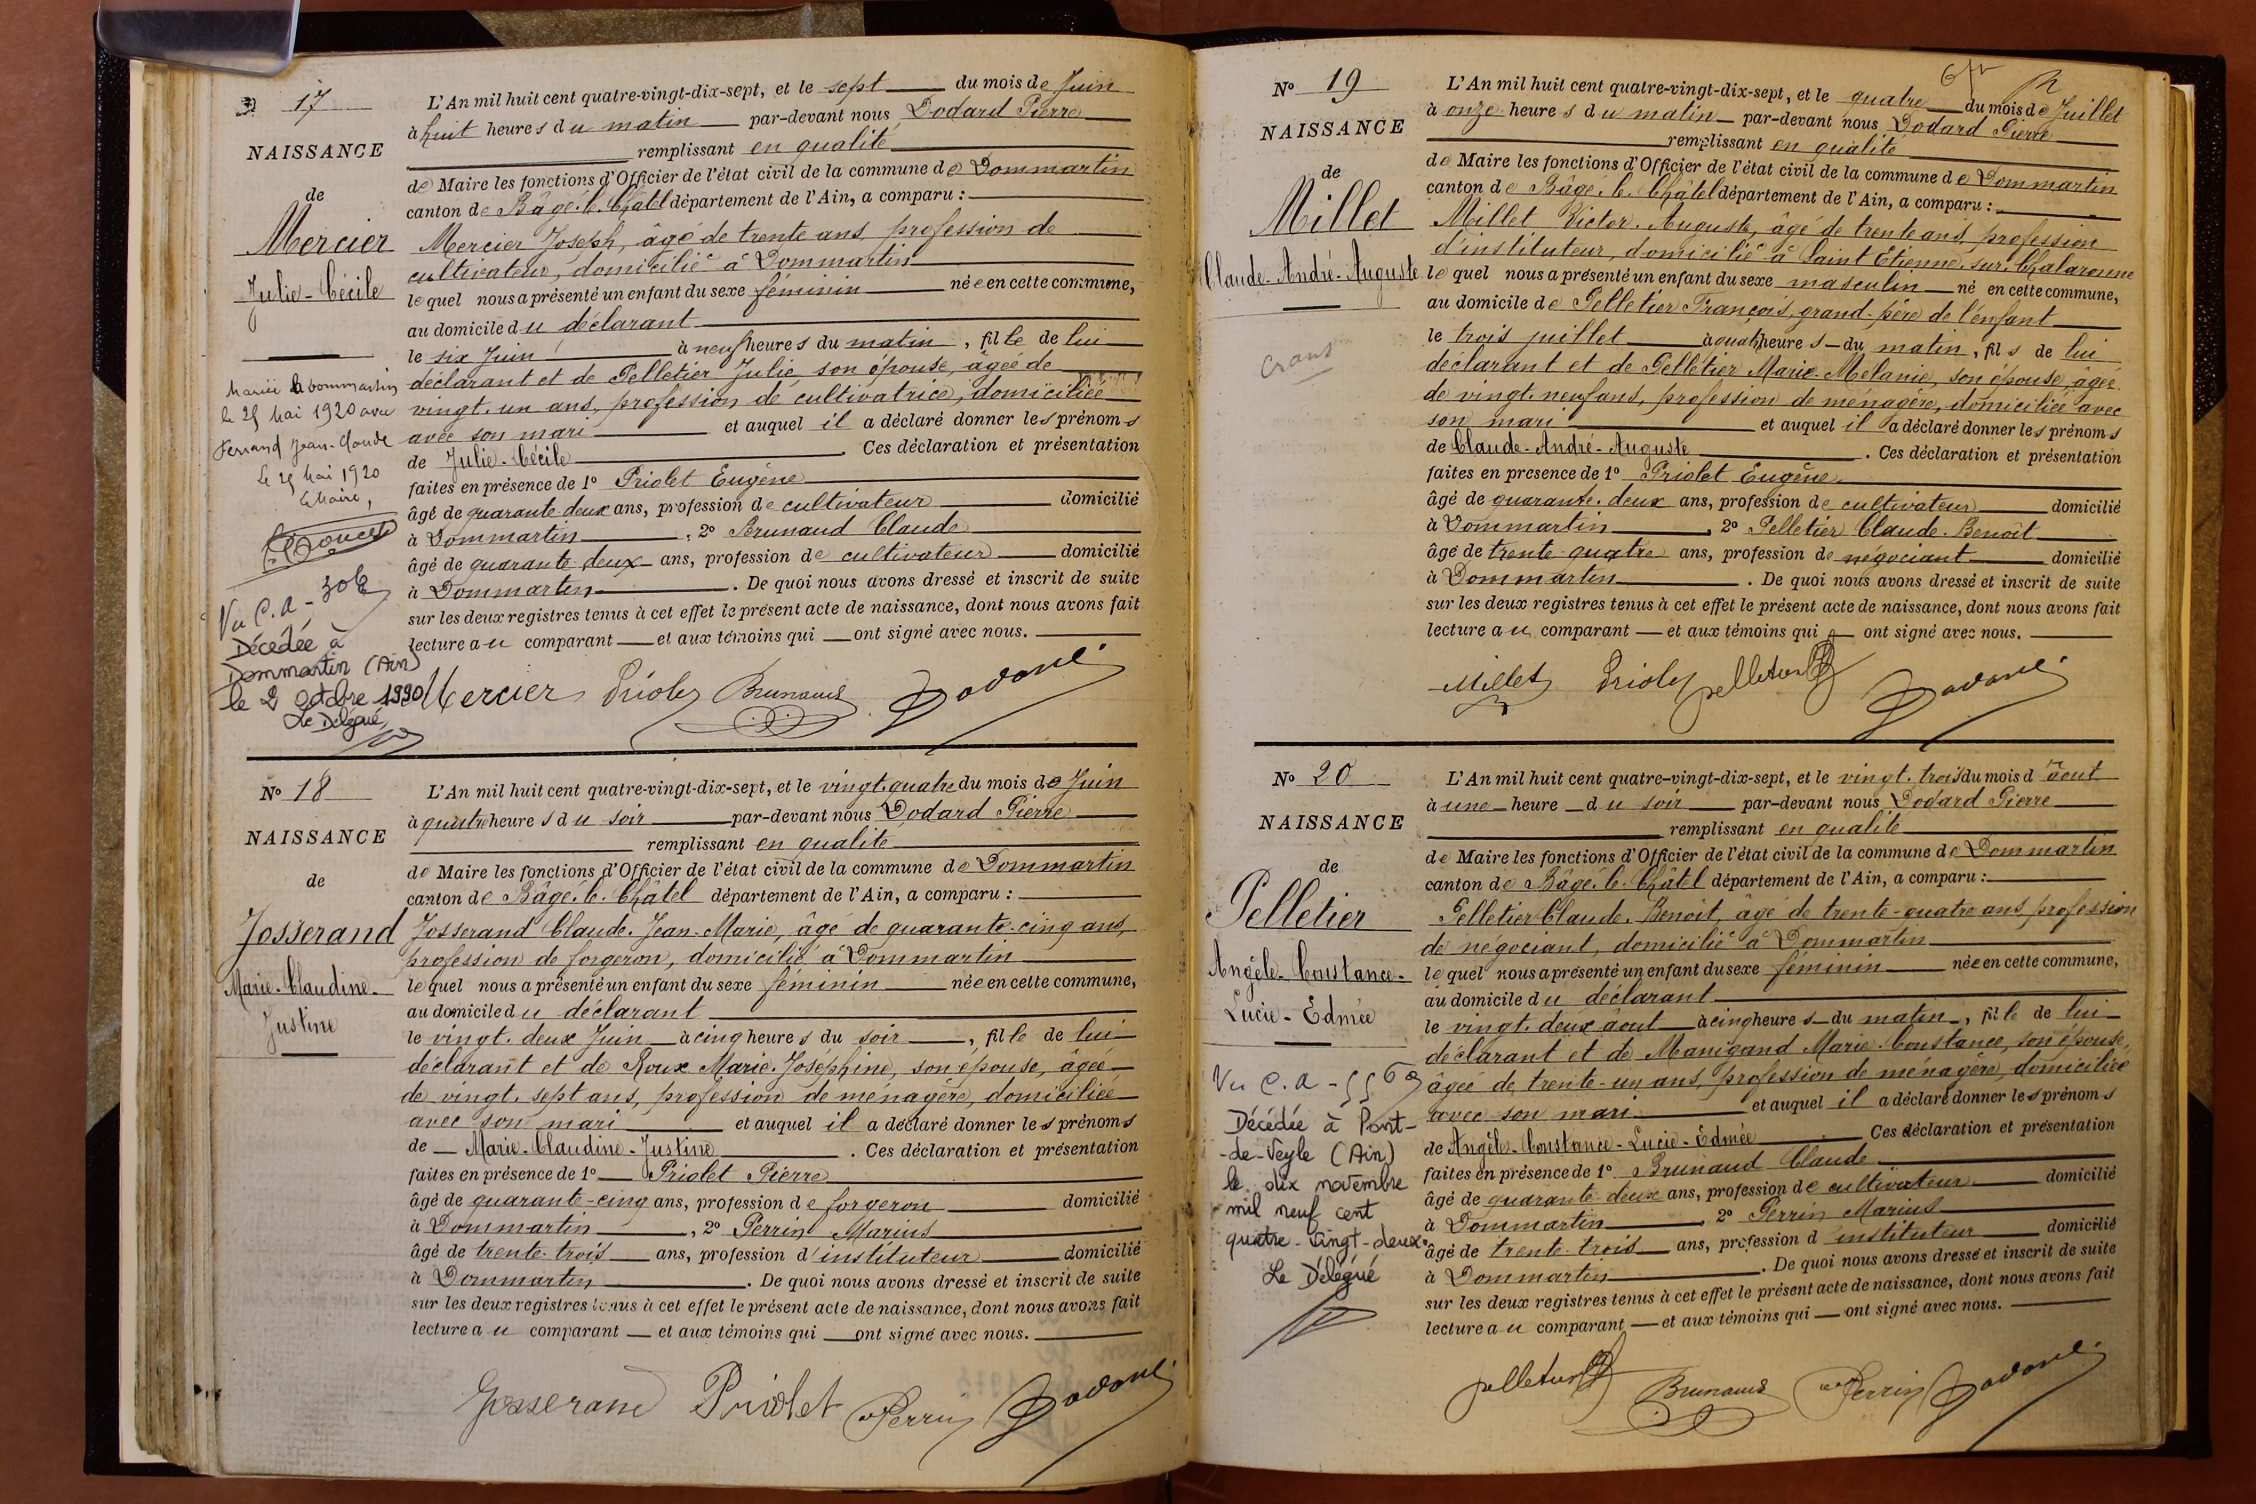 17
NAISSANCE
de
Mercier
Julie-Cécile
Mariée à Dommartin
le 29 Mai 1920 avec
Ferrand Jean-Claude
Le 29 Mai 1920
Le Maire,
Vu C.A -
Décédée à
Dommartin (Ain)
le 2 octobre 1990
Le Délégué
L'An mil huit cent quatre-vingt-dix-sept, et le sept du mois de Juin
à huit heures du matin par-devant nous Dodard Pierre
remplissant en qualité
de Maire les fonctions d'Officier de l'état civil de la commune de Dommartin
canton de Bâgé-le-Châtel département de l'Ain, a comparu :
Mercier Joseph, âgé de trente ans, profession de
cultivateur, domicilié à Dommartin
lequel nous a présenté un enfant du sexe féminin née en cette commune,
au domicile du déclarant
le six Juin à neuf heures du matin, fille de lui
déclarant et de Pelletier Julie, son épouse, âgée de
vingt-un ans, profession de cultivatrice, domiciliée
avec son mari et auquel il a déclaré donner les prénoms
de Julie-Cécile. Ces déclaration et présentation
faites en présence de 1° Priolet Eugène
âgé de quarante deux ans, profession de cultivateur domicilié
à Dommartin, 2° Brunaud Claude
âgé de quarante-deux ans, profession de cultivateur domicilié
à Dommartin. De quoi nous avons dressé et inscrit de suite
sur les deux registres tenus à cet effet le présent acte de naissance, dont nous avons fait
lecture au comparant et aux témoins qui ont signé avec nous.
Mercier Priolet Brunaud Dodard
N° 18
NAISSANCE
de
Josserand
Marie-Claudine-
Justine
L'An mil huit cent quatre-vingt-dix-sept, et le vingt-quatre du mois de Juin
à quatre heures du soir par-devant nous Dodard Pierre
remplissant en qualité
de Maire les fonctions d'Officier de l'état civil de la commune de Dommartin
canton de Bâgé-le-Châtel département de l'Ain, a comparu :
Josserand Claude-Jean-Marie, âgé de quarante-cinq ans,
profession de forgeron, domicilié à Dommartin
lequel nous a présenté un enfant du sexe féminin née en cette commune,
au domicile du déclarant
le vingt-deux Juin à cinq heures du soir, fille de lui
déclarant et de Roux Marie-Joséphine, son épouse, âgée
de vingt-sept ans, profession de ménagère, domiciliée
avec son mari et auquel il a déclaré donner les prénoms
de Marie-Claudine-Justine. Ces déclaration et présentation
faites en présence de 1° Priolet Pierre
âgé de quarante-cinq ans, profession de forgeron domicilié
à Dommartin, 2° Perrin Marius
âgé de trente-trois ans, profession d'instituteur domicilié
à Dommartin. De quoi nous avons dressé et inscrit de suite
sur les deux registres tenus à cet effet le présent acte de naissance, dont nous avons fait
lecture au comparant et aux témoins qui ont signé avec nous.
Josserand Priolet Perrin Dodard
N° 19
NAISSANCE
de
Millet
Claude-André-Auguste
Crans
L'An mil huit cent quatre-vingt-dix-sept, et le quatre du mois de Juillet
à onze heures du matin par-devant nous Dodard Pierre
remplissant en qualité
de Maire les fonctions d'Officier de l'état civil de la commune de Dommartin
canton de Bâgé-le-Châtel département de l'Ain, a comparu :
Millet Victor-Auguste, âgé de trente ans, profession
d'instituteur, domicilié à Saint Etienne-sur-Chalaronne
lequel nous a présenté un enfant du sexe masculin né en cette commune,
au domicile de Pelletier François, grand-père de l'enfant
le trois juillet à quatre heures du matin, fils de lui
déclarant et de Pelletier Marie-Mélanie, son épouse, âgée
de vingt-neuf ans, profession de ménagère, domiciliée avec
son mari et auquel il a déclaré donner les prénoms
de Claude-André-Auguste. Ces déclaration et présentation
faites en présence de 1° Priolet Eugène
âgé de quarante-deux ans, profession de cultivateur domicilié
à Dommartin, 2° Pelletier Claude-Benoît
âgé de trente-quatre ans, profession de négociant domicilié
à Dommartin. De quoi nous avons dressé et inscrit de suite
sur les deux registres tenus à cet effet le présent acte de naissance, dont nous avons fait
lecture au comparant et aux témoins qui ont signé avec nous.
Millet Priolet Pelletier Dodard
N° 20
NAISSANCE
de
Pelletier
Angèle-Constance-
Lucie-Edmée
Vu C.A -
Décédée à Pont-
-de-Veyle (Ain)
le dix novembre
mil neuf cent
quatre-vingt-deux.
Le Délégué
L'An mil huit cent quatre-vingt-dix-sept, et le vingt-trois du mois d'août
à une heure du soir par-devant nous Dodard Pierre
remplissant en qualité
de Maire les fonctions d'Officier de l'état civil de la commune de Dommartin
canton de Bâgé-le-Châtel département de l'Ain, a comparu :
Pelletier Claude-Benoît, âgé de trente-quatre ans, profession
de négociant, domicilié à Dommartin
lequel nous a présenté un enfant du sexe féminin née en cette commune,
au domicile du déclarant
le vingt-deux août à cinq heures du matin, fille de lui
déclarant et de Manigand Marie-Constance, son épouse,
âgée de trente-un ans, profession de ménagère, domiciliée
avec son mari et auquel il a déclaré donner les prénoms
de Angèle-Constance-Lucie-Edmée Ces déclaration et présentation
faites en présence de 1° Brunaud Claude
âgé de quarante-deux ans, profession de cultivateur domicilié
à Dommartin, 2° Perrin Marius
âgé de trente-trois ans, profession d'instituteur domicilié
à Dommartin. De quoi nous avons dressé et inscrit de suite
sur les deux registres tenus à cet effet le présent acte de naissance, dont nous avons fait
lecture au comparant et aux témoins qui ont signé avec nous.
Pelletier Brunaud Perrin Dodard